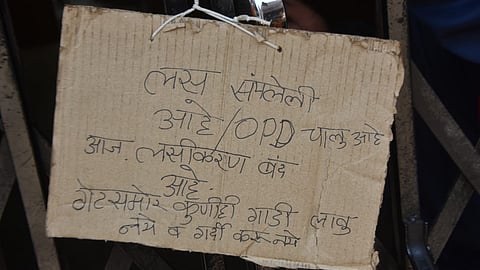 लस संपलेली
आहे / OPD चालु आहे
आज. लसीकरण बंद
आहे.
गेटसमोर कुणीही गाडी लावु
नये व गर्दी करू नये